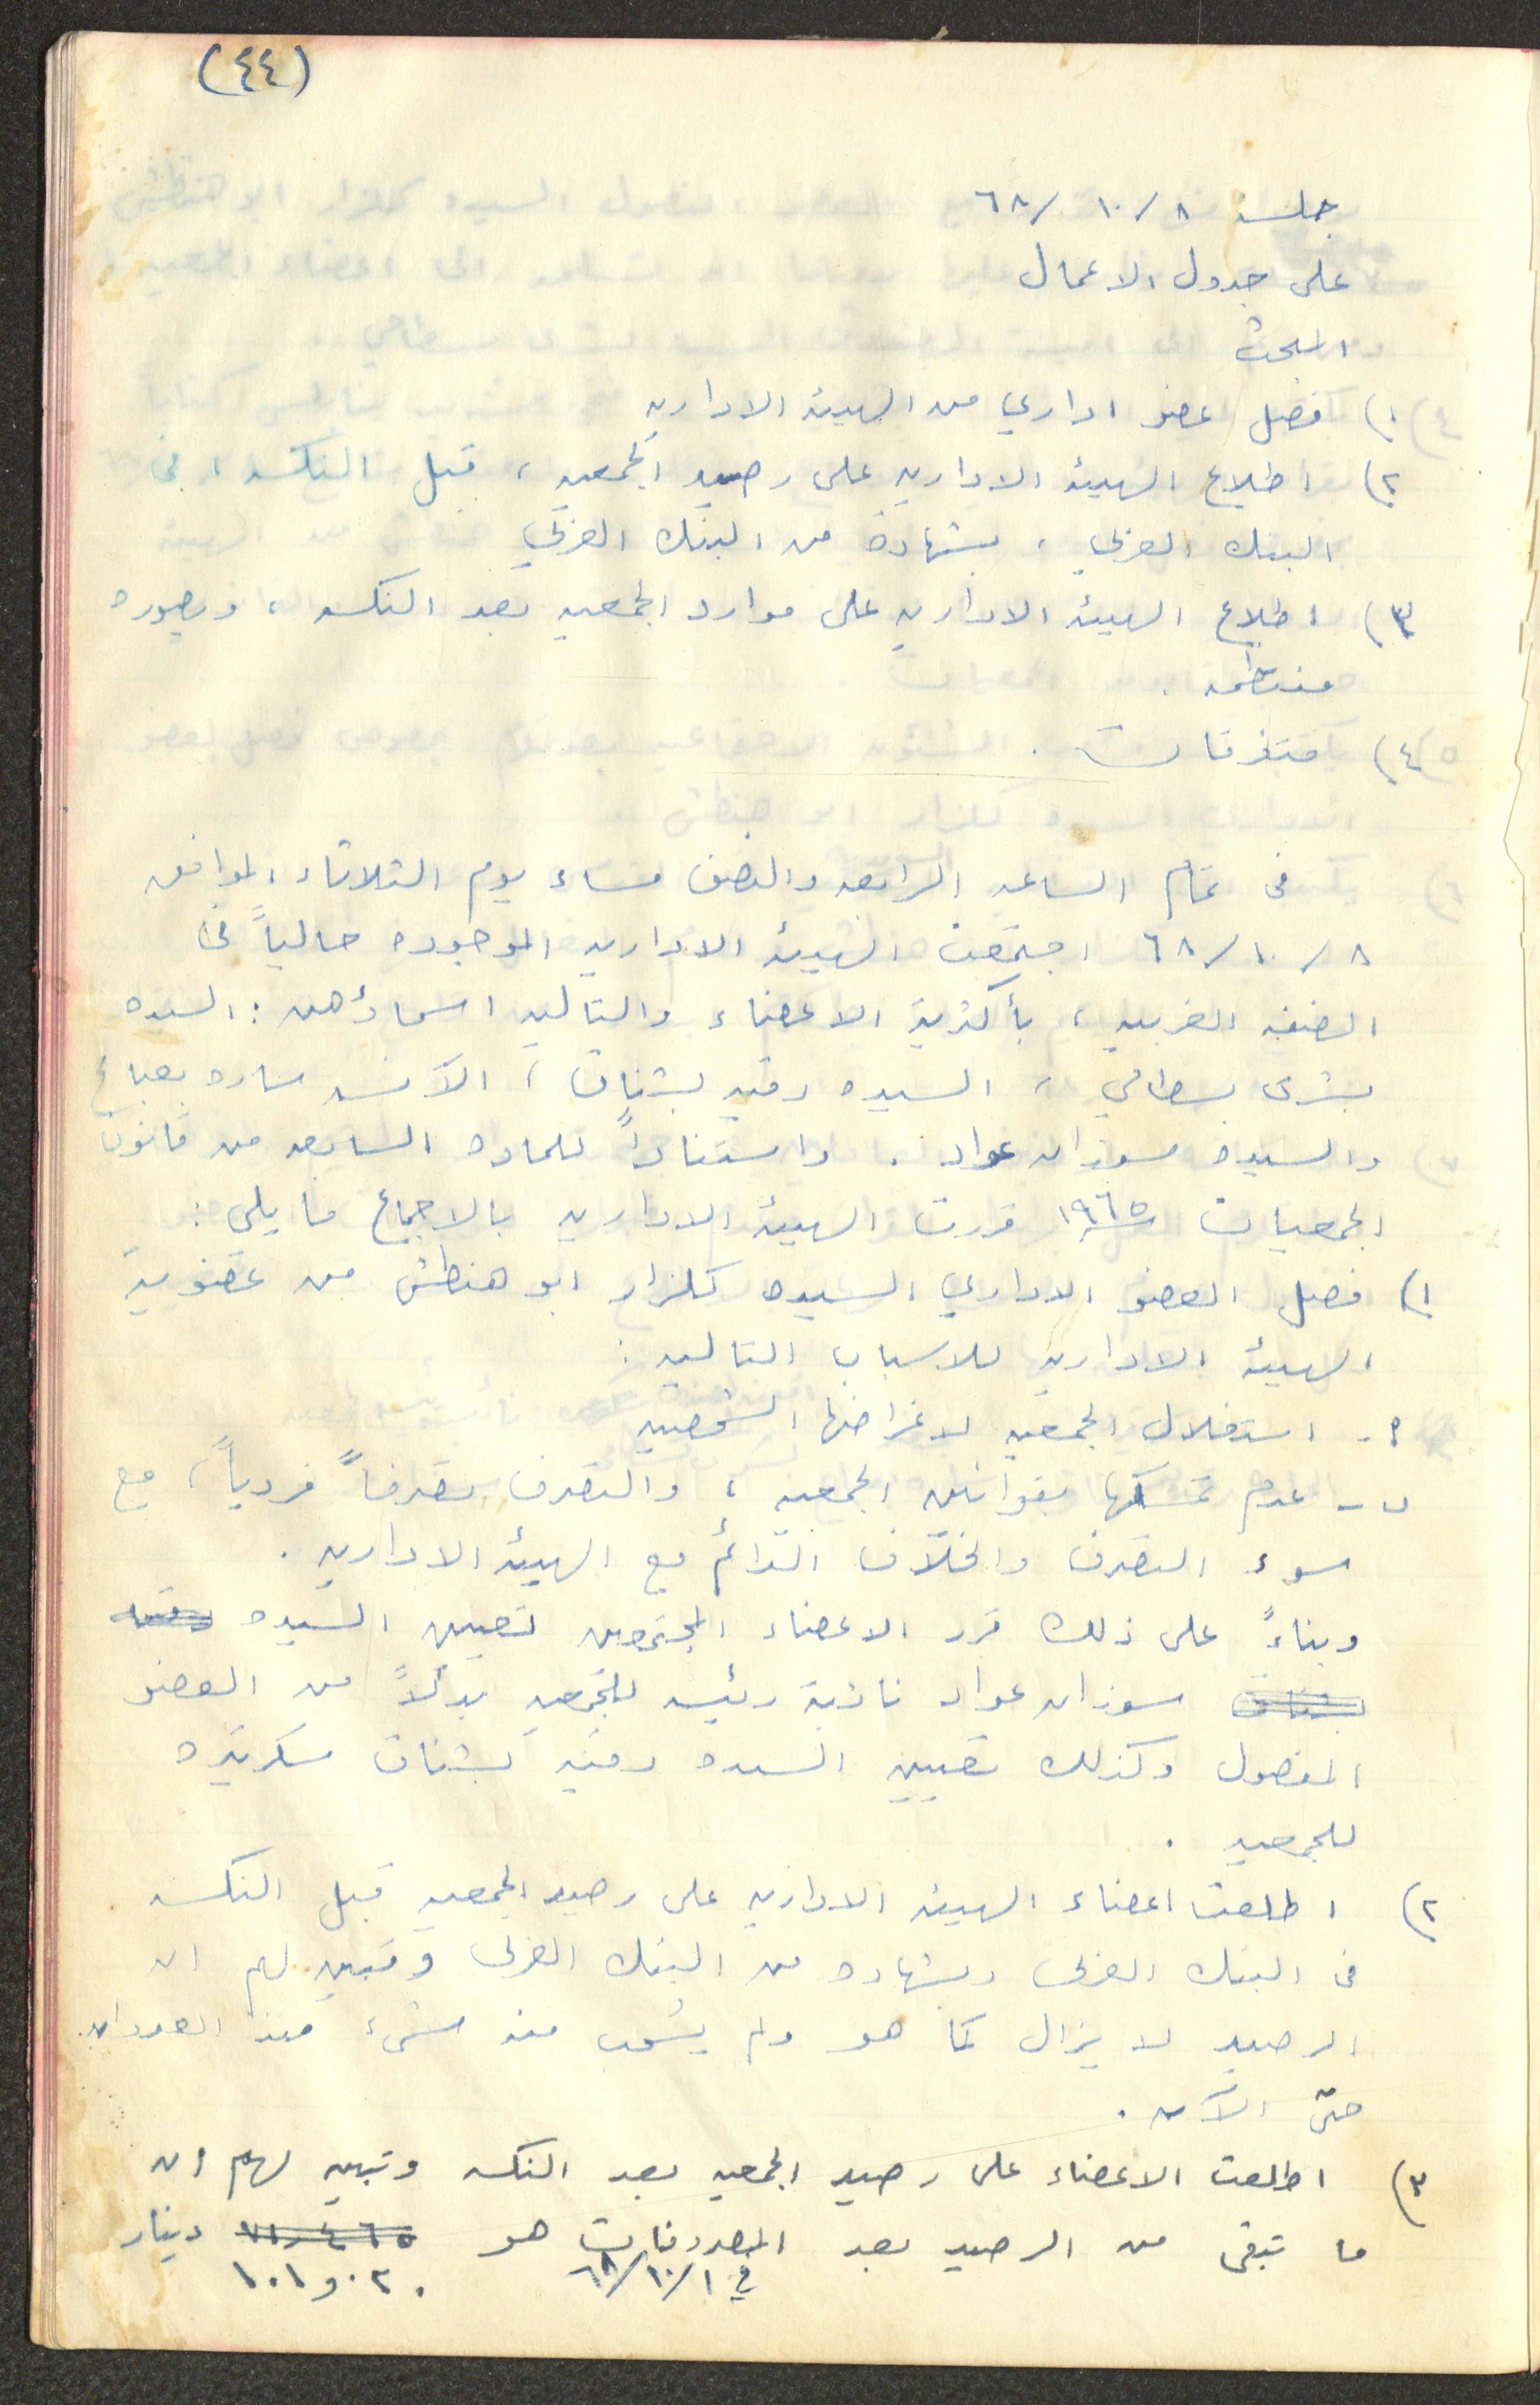 (٤٤)
جلسة ٨/١٠/٦٨
على جدول الاعمال
البحث
١) فصل عضو اداري من الهيئة الاداريه
٢) اطلاع الهيئة الاداريه على رصيد الجمعيه ، قبل النكسه ، في
البنك العربي ، بشهادة من البنك العربي
٣) اطلاع الهيئة الاداريه على موارد الجمعيه بعد النكسه ، وبصوره
منتظمه .
٤) متفرقات .
في تمام الساعه الرابعه والنصف مساء يوم الثلاثاء الموافق
٨/١٠/٦٨ اجتمعت الهيئة الاداريه الموجوده حالياً في
الضفه الغربيه ، بأكثرية الاعضاء والتاليه اسماؤهن : السيده
بشرى بسطامي ، السيده رقيه بشناق ، الآنسه ساره بعباع
والسيده سوزان عواد . واستناداً للماده السابعه من قانون
الجمعيات ١٩٦٥ قررت الهيئة الاداريه بالاجماع ما يلي :
١) فصل العضو الاداري السيده كلزار ابو هنطش من عضوية
الهيئة الاداريه للاسباب التاليه :
أ - استغلال الجمعيه لاغراضها الشخصيه
ب - عدم تمسكها بقوانين الجمعيه ، والتصرف تصرفاً فردياً ، مع
سوء التصرف والخلاف الدائم مع الهيئة الاداريه .
وبناءً على ذلك قرر الاعضاء المجتمعين تعيين السيده رقيه
بشناق سوزان عواد نائبة رئيسه للجمعيه بدلاً من العضو
المفصول وكذلك تعيين السيده رقيه بشناق سكرتيره
للجمعيه .
٢) اطلعت اعضاء الهيئة الاداريه على رصيد الجمعيه قبل النكسه
في البنك العربي وبشهاده من البنك العربي وتبين لهم ان
الرصيد لا يزال كما هو ولم يسحب منه شيء منذ العدوان
حتى الآن .
٣) اطلعت الاعضاء على رصيد الجمعيه بعد النكسه وتبين لهم ان
ما تبقى من الرصيد بعد المصروفات هو دينار
في ١/١٠/٦٨ ١٠١و٠٢٠